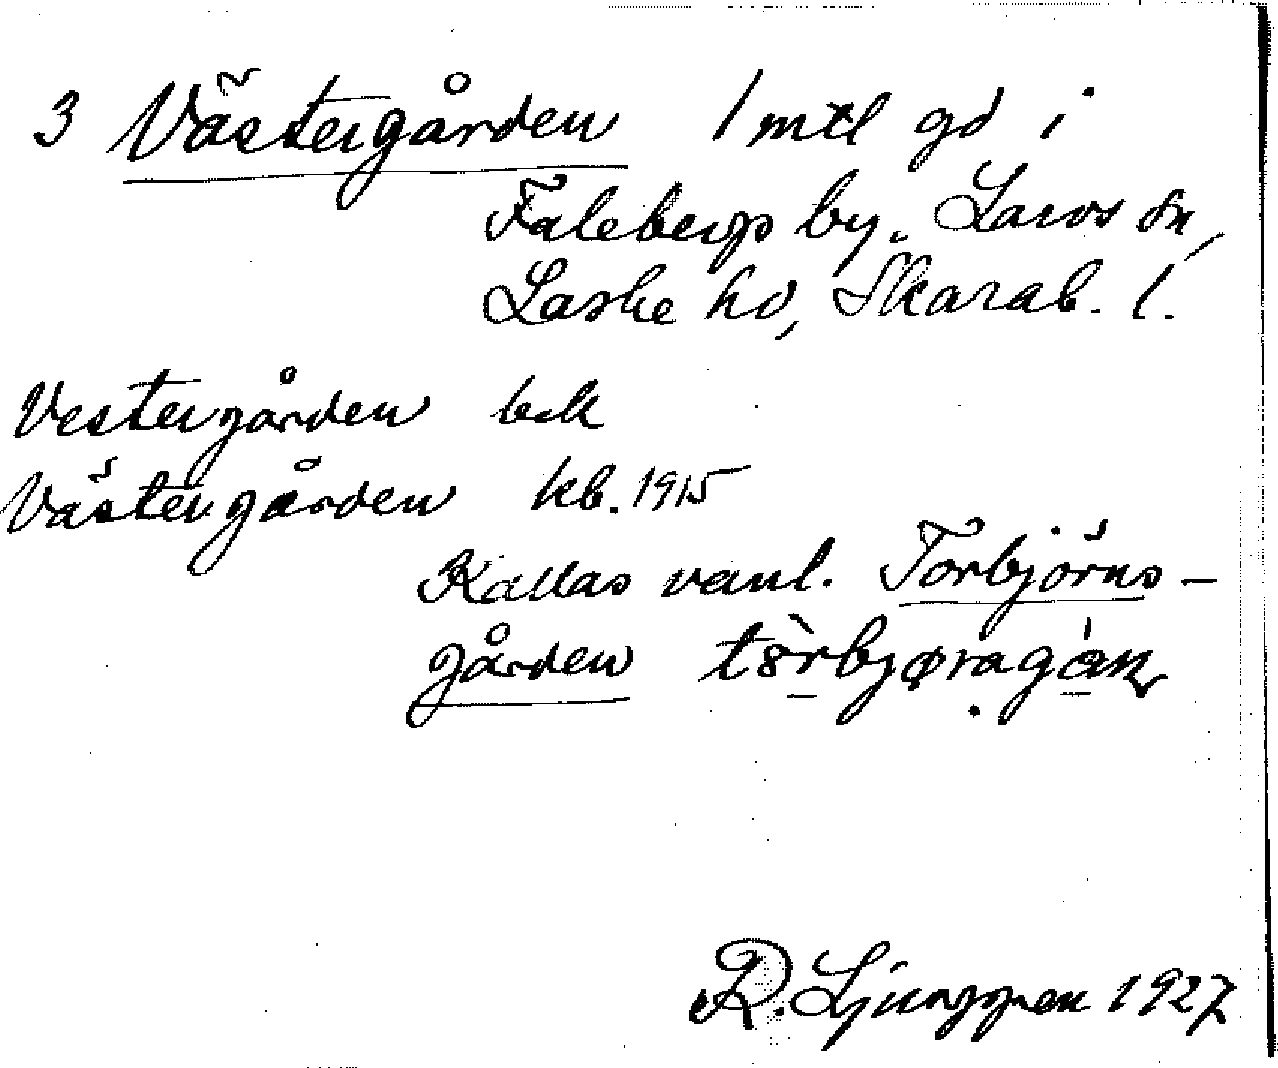 3 Västergården 1 mtl gd i
Falebergs by, Larvs sn,
Laske hd, Skarab. l.
Vestergården bek
Västergården kb. 1915
Kallas vanl. Torbjörns-
gården
R. Ljunggren 1927